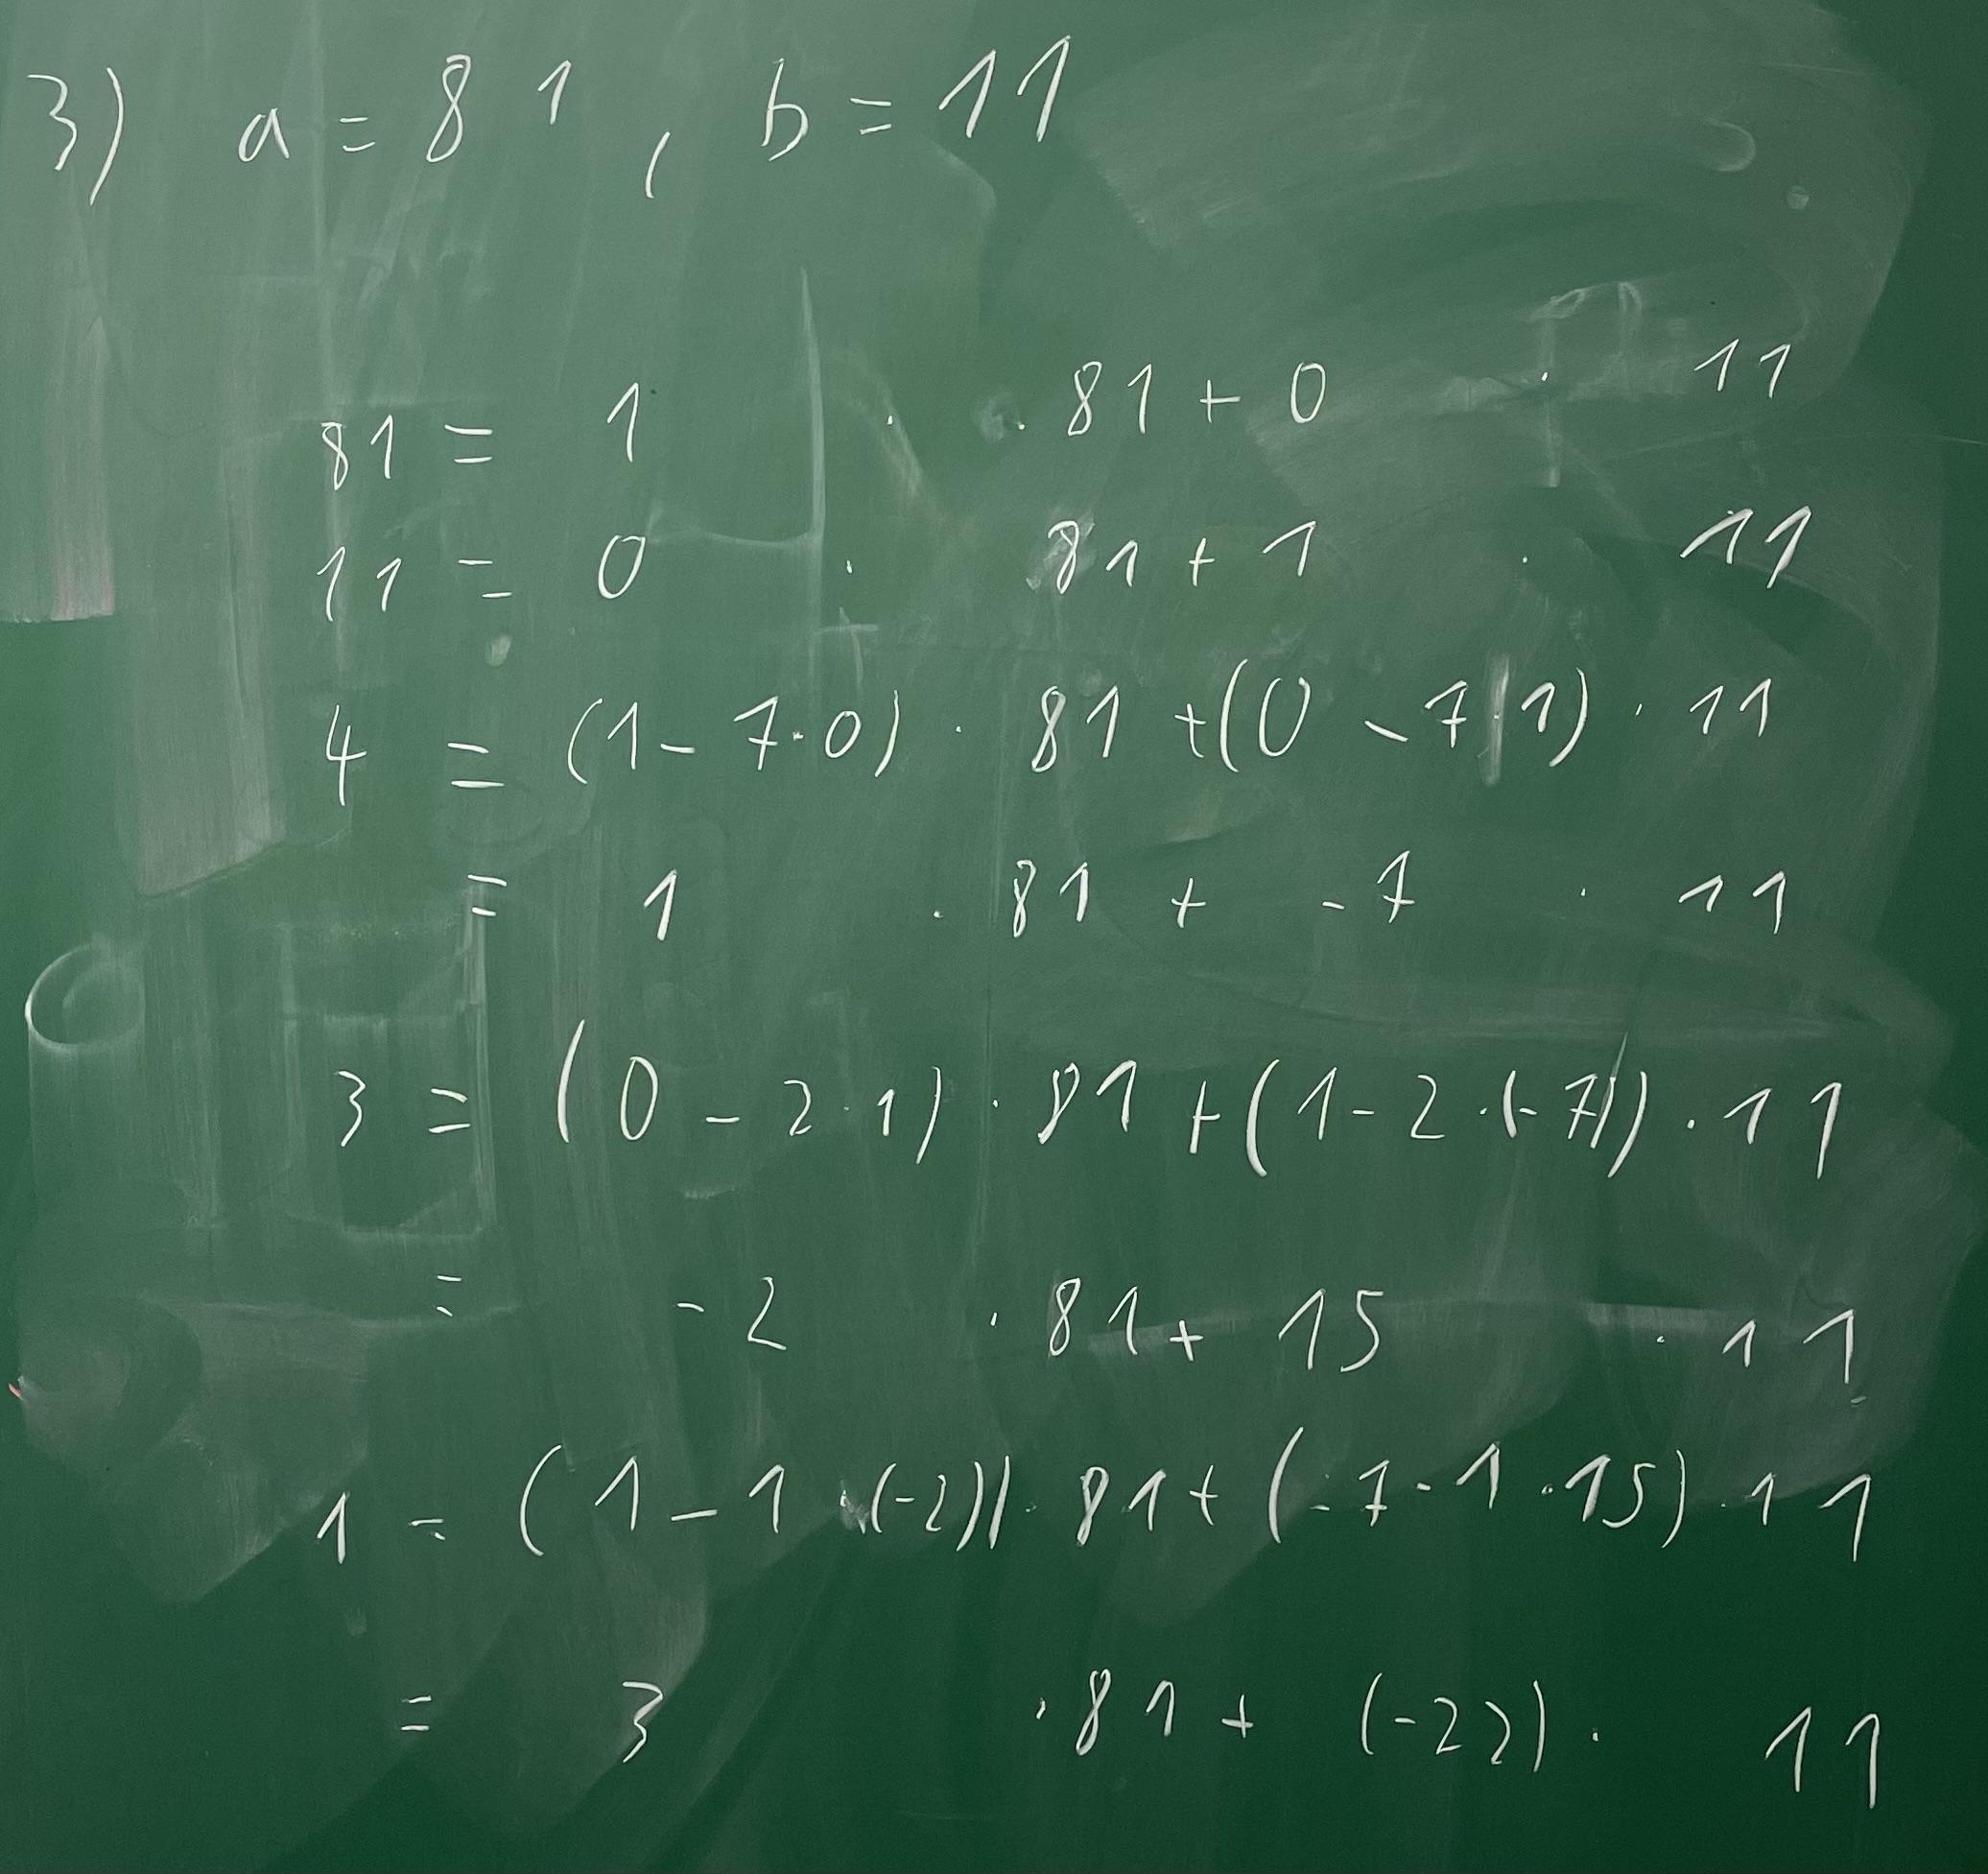 3) a = 81, b = 11
81 = 1 · 81 + 0 · 11
11 = 0 · 81 + 1 · 11
4 = (1 - 7·0) · 81 + (0 - 7·1) · 11
= 1 · 81 + -7 · 11
3 = (0 - 2·1) · 81 + (1 - 2·(-7)) · 11
= -2 · 81 + 15 · 11
1 = (1 - 1·(-2)) · 81 + (-7 - 1·15) · 11
= 3 · 81 + (-22) · 11